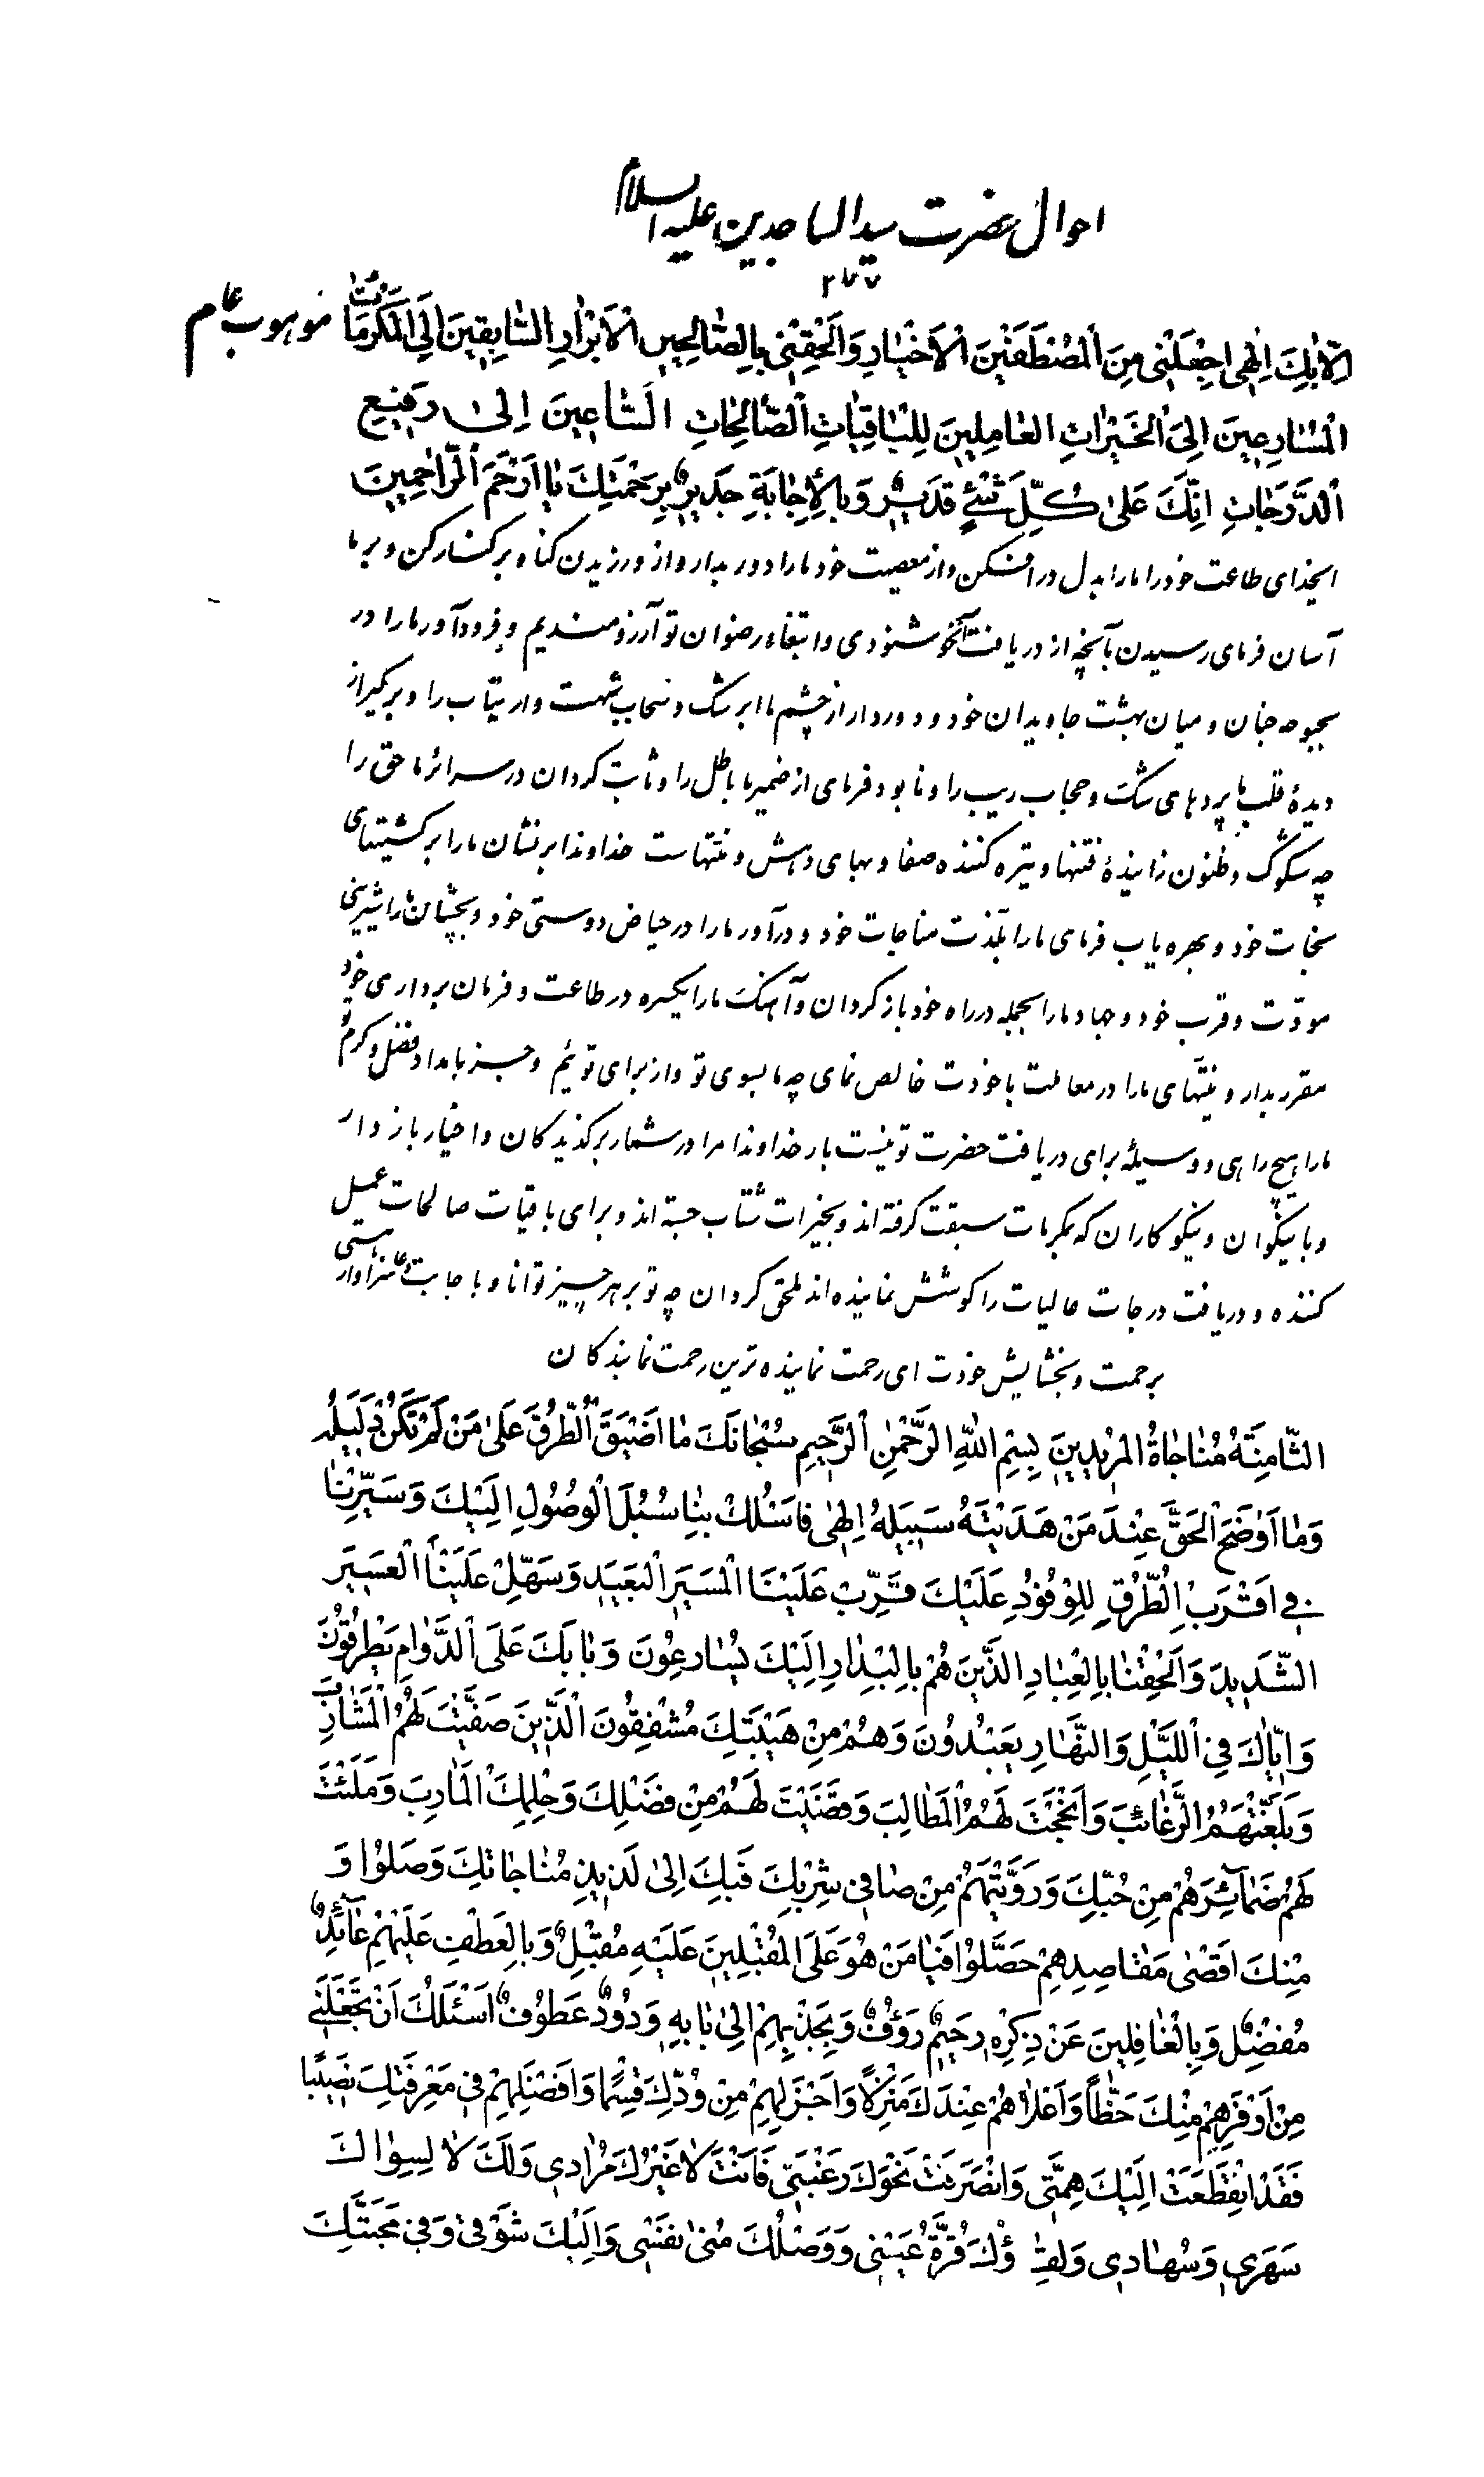 احوال حضرت سید الساجدین علیه السلام
۲۷۷
اِلّا بِكَ اِلٰهی اِجْعَلْنی مِنَ اَلْمُصْطَفَیْنَ الْاَخْیٰارِ وَ اَلْحِقْنی بِالصّٰالِحینِ الْاَبْرٰارِ السّٰابِقینَ اِلَی الْمَكْرُمٰاتِ
موهوب عام
الْمُسٰارِعینَ اِلَی الْخَیْرٰاتِ الْعٰامِلینَ لِلْبٰاقِیٰاتِ الصّٰالِحٰاتِ السّٰاعینَ اِلیٰ رَفیعِ
اَلدَّرَجٰاتِ اِنَّكَ عَلیٰ كُلِّ شَیْءٍ قَدیرٌ وَ بِالْأِجٰابَةِ جَدیرٌ بِرَحْمَتِكَ یٰا اَرْحَمَ الرّٰاحِمینَ
ایخدای طاعت خود را ما را بدل در افکن و از معصیت خود ما را دور بدار و از ورزیدن گناه برکنار کن و بر ما
آسان فرمای رسیدن بآنچه از دریافت خوشنودی و ابتغاء رضوان تو آرزومندیم و فرود آور ما را در
بحبوحه جنان و میان بهشت جاویدان خود و دور دار از چشم ما ابر شک و سحاب شبهت و ارتیاب را و برگیر از
دیدهٔ قلب ما پردهای شکت و حجاب ریب را و نابود فرمای از ضمیر ما باطل را و ثابت گردان در سرائر ما حق را
چه شکوک و ظنون زایندهٔ فتنها و تیره کننده صفا و بهای دهش و منتهاست خداوندا برنشان ما را برکشتیهای
نجات خود و بهره یاب فرمای ما را بلذت مناجات خود و درآور ما را در حیاض دوستی خود و بچشان ما را شیرینی
مودّت و قرب خود و جهاد ما را بجمله در راه خود باز گردان و آهنگ ما را یکسره در طاعت و فرمان برداری خود
مقرر بدار و نیّتهای ما را در معاملت با خودت خالص نمای چه ما بسوی تو و از برای توئیم و جز بامداد فضل و کرم تو
ما را هیچ راهی و وسیلهٔ برای دریافت حضرت تو نیست بار خداوندا مرا در شمار برگزیدگان و اخیار باز دار
و با نیکوان و نیکو کاران که بمکرمات سبقت گرفته اند و بخیرات شتاب جسته اند و برای باقیات صالحات عمل
کننده و دریافت درجات عالیات را کوشش نماینده اند ملحق گردان چه تو بر هر چیز توانا و باجابت دعا سزاوار هستی
برحمت و بخشایش خودت ای رحمت نماینده ترین رحمت نمایندگان
الثّٰامِنَةُ مُنٰاجٰاةُ الْمُریدینَ بِسْمِ اللّٰهِ الرَّحْمٰنِ الرَّحیمِ سُبْحٰانَكَ مٰا اَضْیَقَ الطُّرُقَ عَلیٰ مَنْ لَمْ تَكُنْ دَلیلَهُ
وَ مٰا اَوْضَحَ الْحَقَّ عِنْدَ مَنْ هَدَیْتَهُ سَبیلَهُ اِلٰهی فَاسْلُكْ بِنٰا سُبُلَ الْوُصُولِ اِلَیْكَ وَ سَیِّرْنٰا
فی اَقْرَبِ الطُّرُقِ لِلْوُفُودِ عَلَیْكَ قَرِّبْ عَلَیْنَا الْمَسیرَ الْبَعیدَ وَ سَهِّلْ عَلَیْنَا الْعَسیرَ
الشَّدیدَ وَ اَلْحِقْنٰا بِالْعِبٰادِ الَّذینَ هُمْ بِالْبِدٰارِ اِلَیْكَ یُسٰارِعُونَ وَ بٰابَكَ عَلَی الدَّوٰامِ یَطْرُقُونَ
وَ اِیّٰاكَ فِی اللَّیْلِ وَ النَّهٰارِ یَعْبُدُونَ وَ هُمْ مِنْ هَیْبَتِكَ مُشْفِقُونَ الَّذینَ صَفَّیْتَ لَهُمُ الْمَشٰارِبَ
وَ بَلَّغْتَهُمُ الرَّغٰائِبَ وَ اَنْجَحْتَ لَهُمُ الْمَطٰالِبَ وَ قَضَیْتَ لَهُمْ مِنْ فَضْلِكَ وَ حِلْمِكَ الْمَآرِبَ وَ مَلَئْتَ
لَهُمْ ضَمٰآئِرَهُمْ مِنْ حُبِّكَ وَ رَوَّیْتَهُمْ مِنْ صٰافی شِرْبِكَ فَبِكَ اِلیٰ لَذیذِ مُنٰاجٰاتِكَ وَصَلُوا وَ
مِنْكَ اَقْصیٰ مَقٰاصِدِهِمْ حَصَّلُوا فَیٰا مَنْ هُوَ عَلَی الْمُقْبِلینَ عَلَیْهِ مُقْبِلٌ وَ بِالْعَطْفِ عَلَیْهِمْ عٰآئِدٌ
مُفْضِلٌ وَ بِالْغٰافِلینَ عَنْ ذِكْرِهِ رَحیمٌ رَؤُفٌ وَ بِجَذْبِهِمْ اِلیٰ بٰابِهِ وَدُودٌ عَطُوفٌ اَسْئَلُكَ اَنْ تَجْعَلَنی
مِنْ اَوْفَرِهِمْ مِنْكَ حَظّاً وَ اَعْلاٰهُمْ عِنْدَكَ مَنْزِلاً وَ اَجْزَلِهِمْ مِنْ وُدِّكَ قِسْمًا وَ اَفْضَلِهِمْ فی مَعْرِفَتِكَ نَصیبًا
فَقَدْ اِنْقَطَعَتْ اِلَیْكَ هِمَّتی وَ انْصَرَفَتْ نَحْوَكَ رَغْبَتی فَاَنْتَ لاٰ غَیْرُكَ مُرٰادی وَ لَكَ لاٰ لِسِوٰاكَ
سَهَری وَ سُهٰادی وَ لِقٰاؤُكَ قُرَّةُ عَیْنی وَ وَصْلُكَ مُنیٰ نَفْسی وَ اِلَیْكَ شَوْقی وَ فی مَحَبَّتِكَ